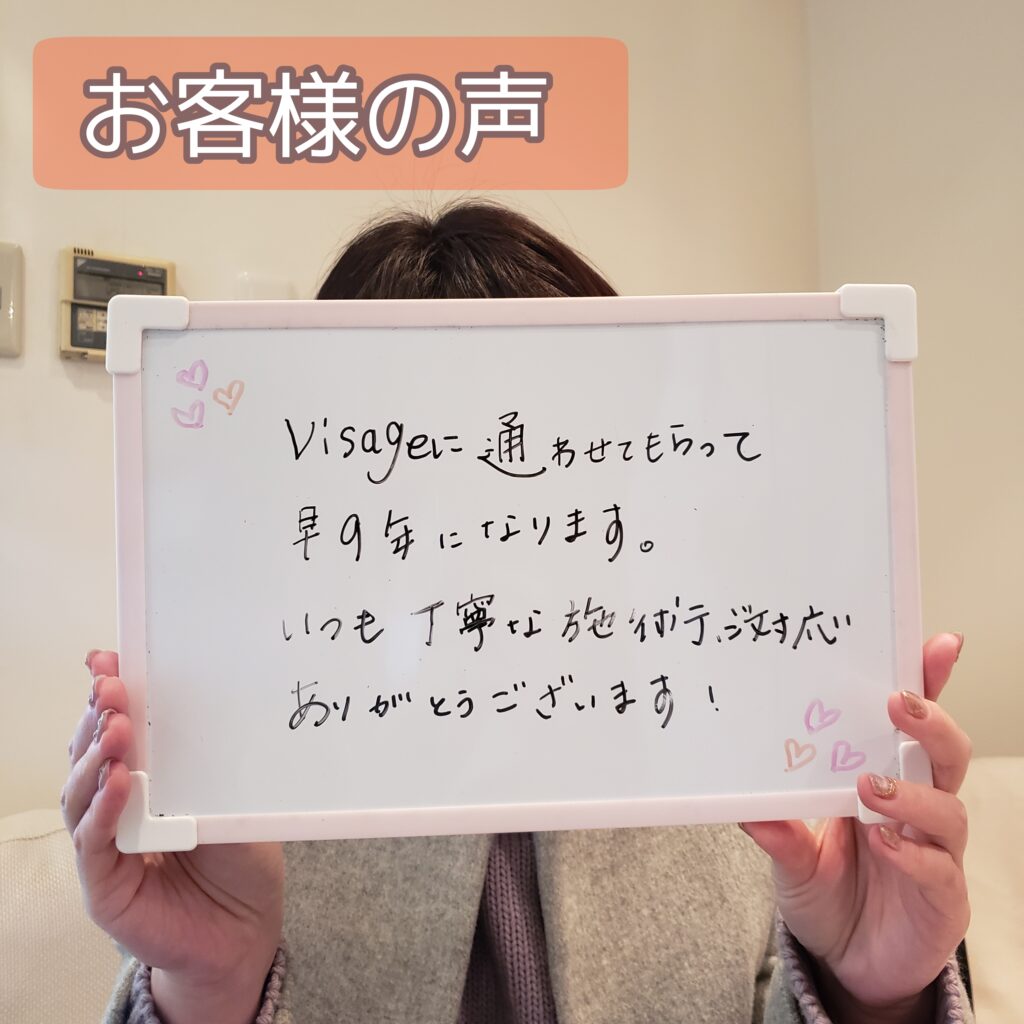 お客様の声
Visageに通わせてもらって
早9年になります。
いつも丁寧な施術、ご対応
ありがとうございます!